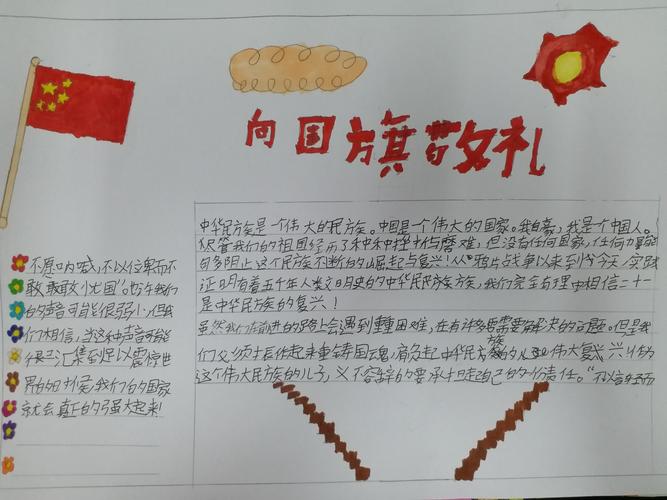 向国旗敬礼
中华民族是一个伟大的民族。中国是一个伟大的国家。我自豪,我是一个中国人。
尽管我们的祖国经历了种种挫折与磨难,但没有任何国家,任何力量能
阻止这个民族不断的崛起与复兴!从鸦片战争以来到今天,实践
证明有着五千年人类文明史的中华民族,我们完全有理由相信二十一
是中华民族的复兴!
虽然我们在前进的路上会遇到重重困难,在有许多需要解决的问题。但是我
们必须于长作起来重铸国魂,肩负起中华民族的伟大复兴!作为
这个伟大民族的儿子,义不容辞的要承担起自己的份责任。“不以言轻而
不愿呐喊,不以位卑而不
敢忧国”也许我们
的声音可能很弱小,但我
们相信,当这种声音可能
很汇集到足以震惊世
界的时候,我们的国家
就会真正的强大起来!